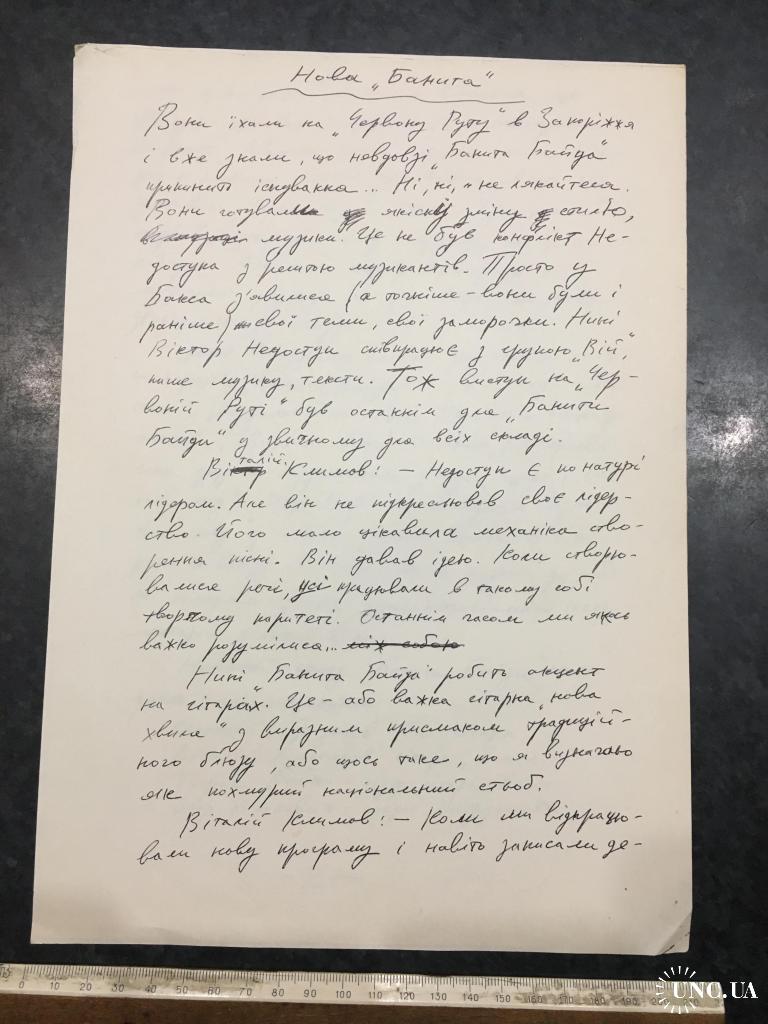 Нова „Банита"
Вони їхали на „Червону Руту" в Запоріжжя
і вже знали, що невдовзі „Банита Байда"
припинить існування... Ні, ні, не лякайтеся.
Вони готували якісну зміну стилю,
музики. Це не був конфлікт Не-
доступа з рештою музикантів. Просто у
Бакса з'явилися (а точніше – вони були і
раніше) свої теми, свої заморочки. Нині
Віктор Недоступ співпрацює з групою „Вій",
пише музику, тексти. Тож виступ на „Чер-
воній Руті" був останнім для „Банити
Байди" у звичному для всіх складі.
Віталій Климов: – Недоступ є по натурі
лідером. Але він не підкреслював своє лідер-
ство. Його мало цікавила механіка ство-
рення пісні. Він давав ідею. Коли створю-
валися речі, усі працювали в такому собі
творчому паритеті. Останнім часом ми якось
важко розумілися... між собою
Нині „Банита Байда" робить акцент
на гітарах. Це – або важка гітарна „нова
хвиля" з виразним присмаком традицій-
ного блюзу, або щось таке, що я визначаю
як похмурий національний стьоб.
Віталій Климов: – Коли ми відпрацю-
вали нову програму і навіть записали де-
0 10 20 30 40 50 60 70 80 90 100 110 120 130 140 150 160 170 180 190
UNC.UA